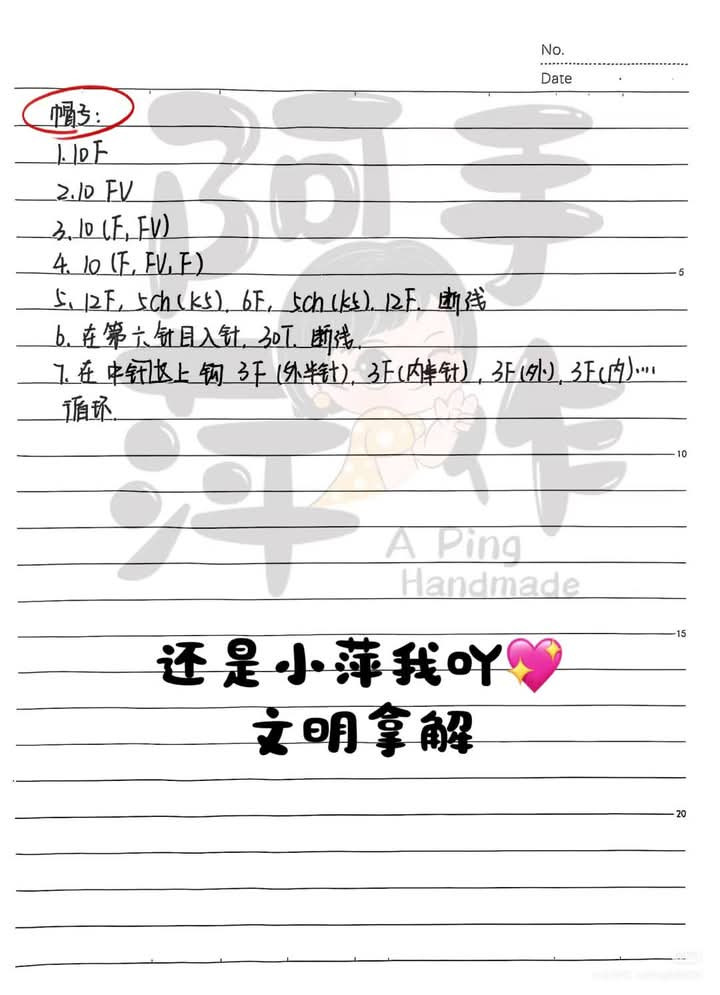 No.
Date
帽子:
1.10F
2.10 FV
3.10 (F, FV)
4.10 (F, FV, F)
5
5. 12F, 5ch(k5), 6F, 5ch(k5), 12F. 断线
6. 在第六针目入针, 30T. 断线.
7. 在中针这上钩 3F(外半针), 3F(内半针), 3F(外), 3F(内)....
循环.
阿萍手作
10
A Ping
Handmade
15
还是小萍我吖💖
文明拿解
20